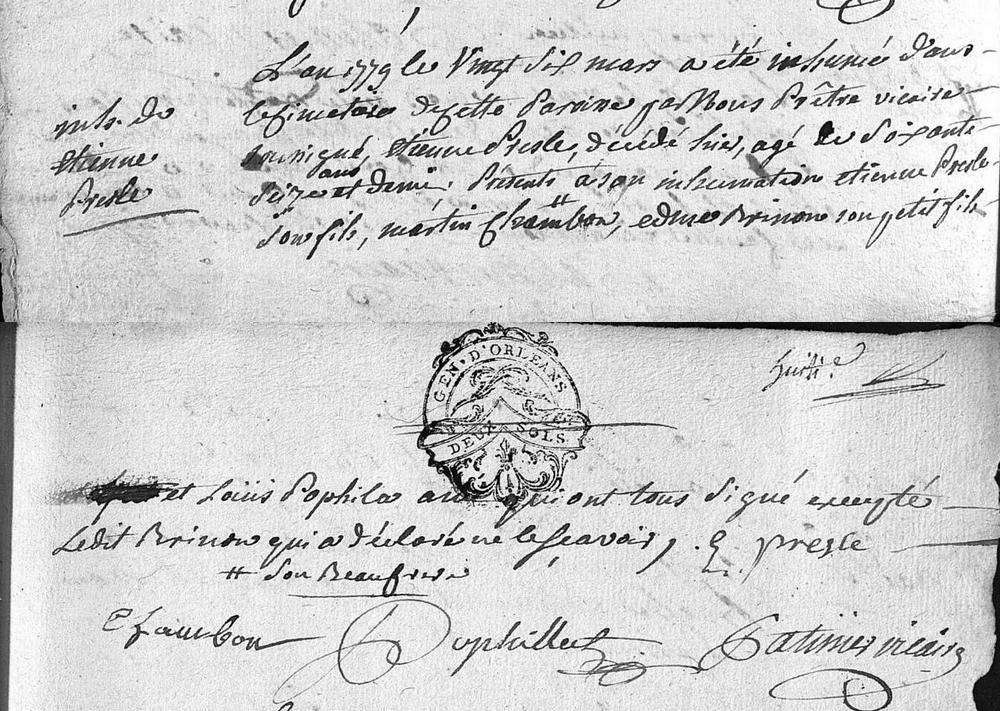 inh. de
etienne
Presle
L'an 1779 le Vingt Six mars a été inhumé dans
le Cimetiere de Cette Paroisse par Nous Prêtre vicaire
soussigné, etienne Presle, décédé hier, agé de Soixante
Seize ans et demi. Présents à son inhumation etienne Presle
Son fils, martin Chambon, # edme Brinon son petit fils
GEN. D'ORLEANS
DEUX SOLS
et Loüis Pophila qui ont tous Signé excepté
Ledit Brinon qui a déclaré ne le Scavoir, . E presle
# Son Beaufrere
Chambon Pophillat Gatimier vicaire